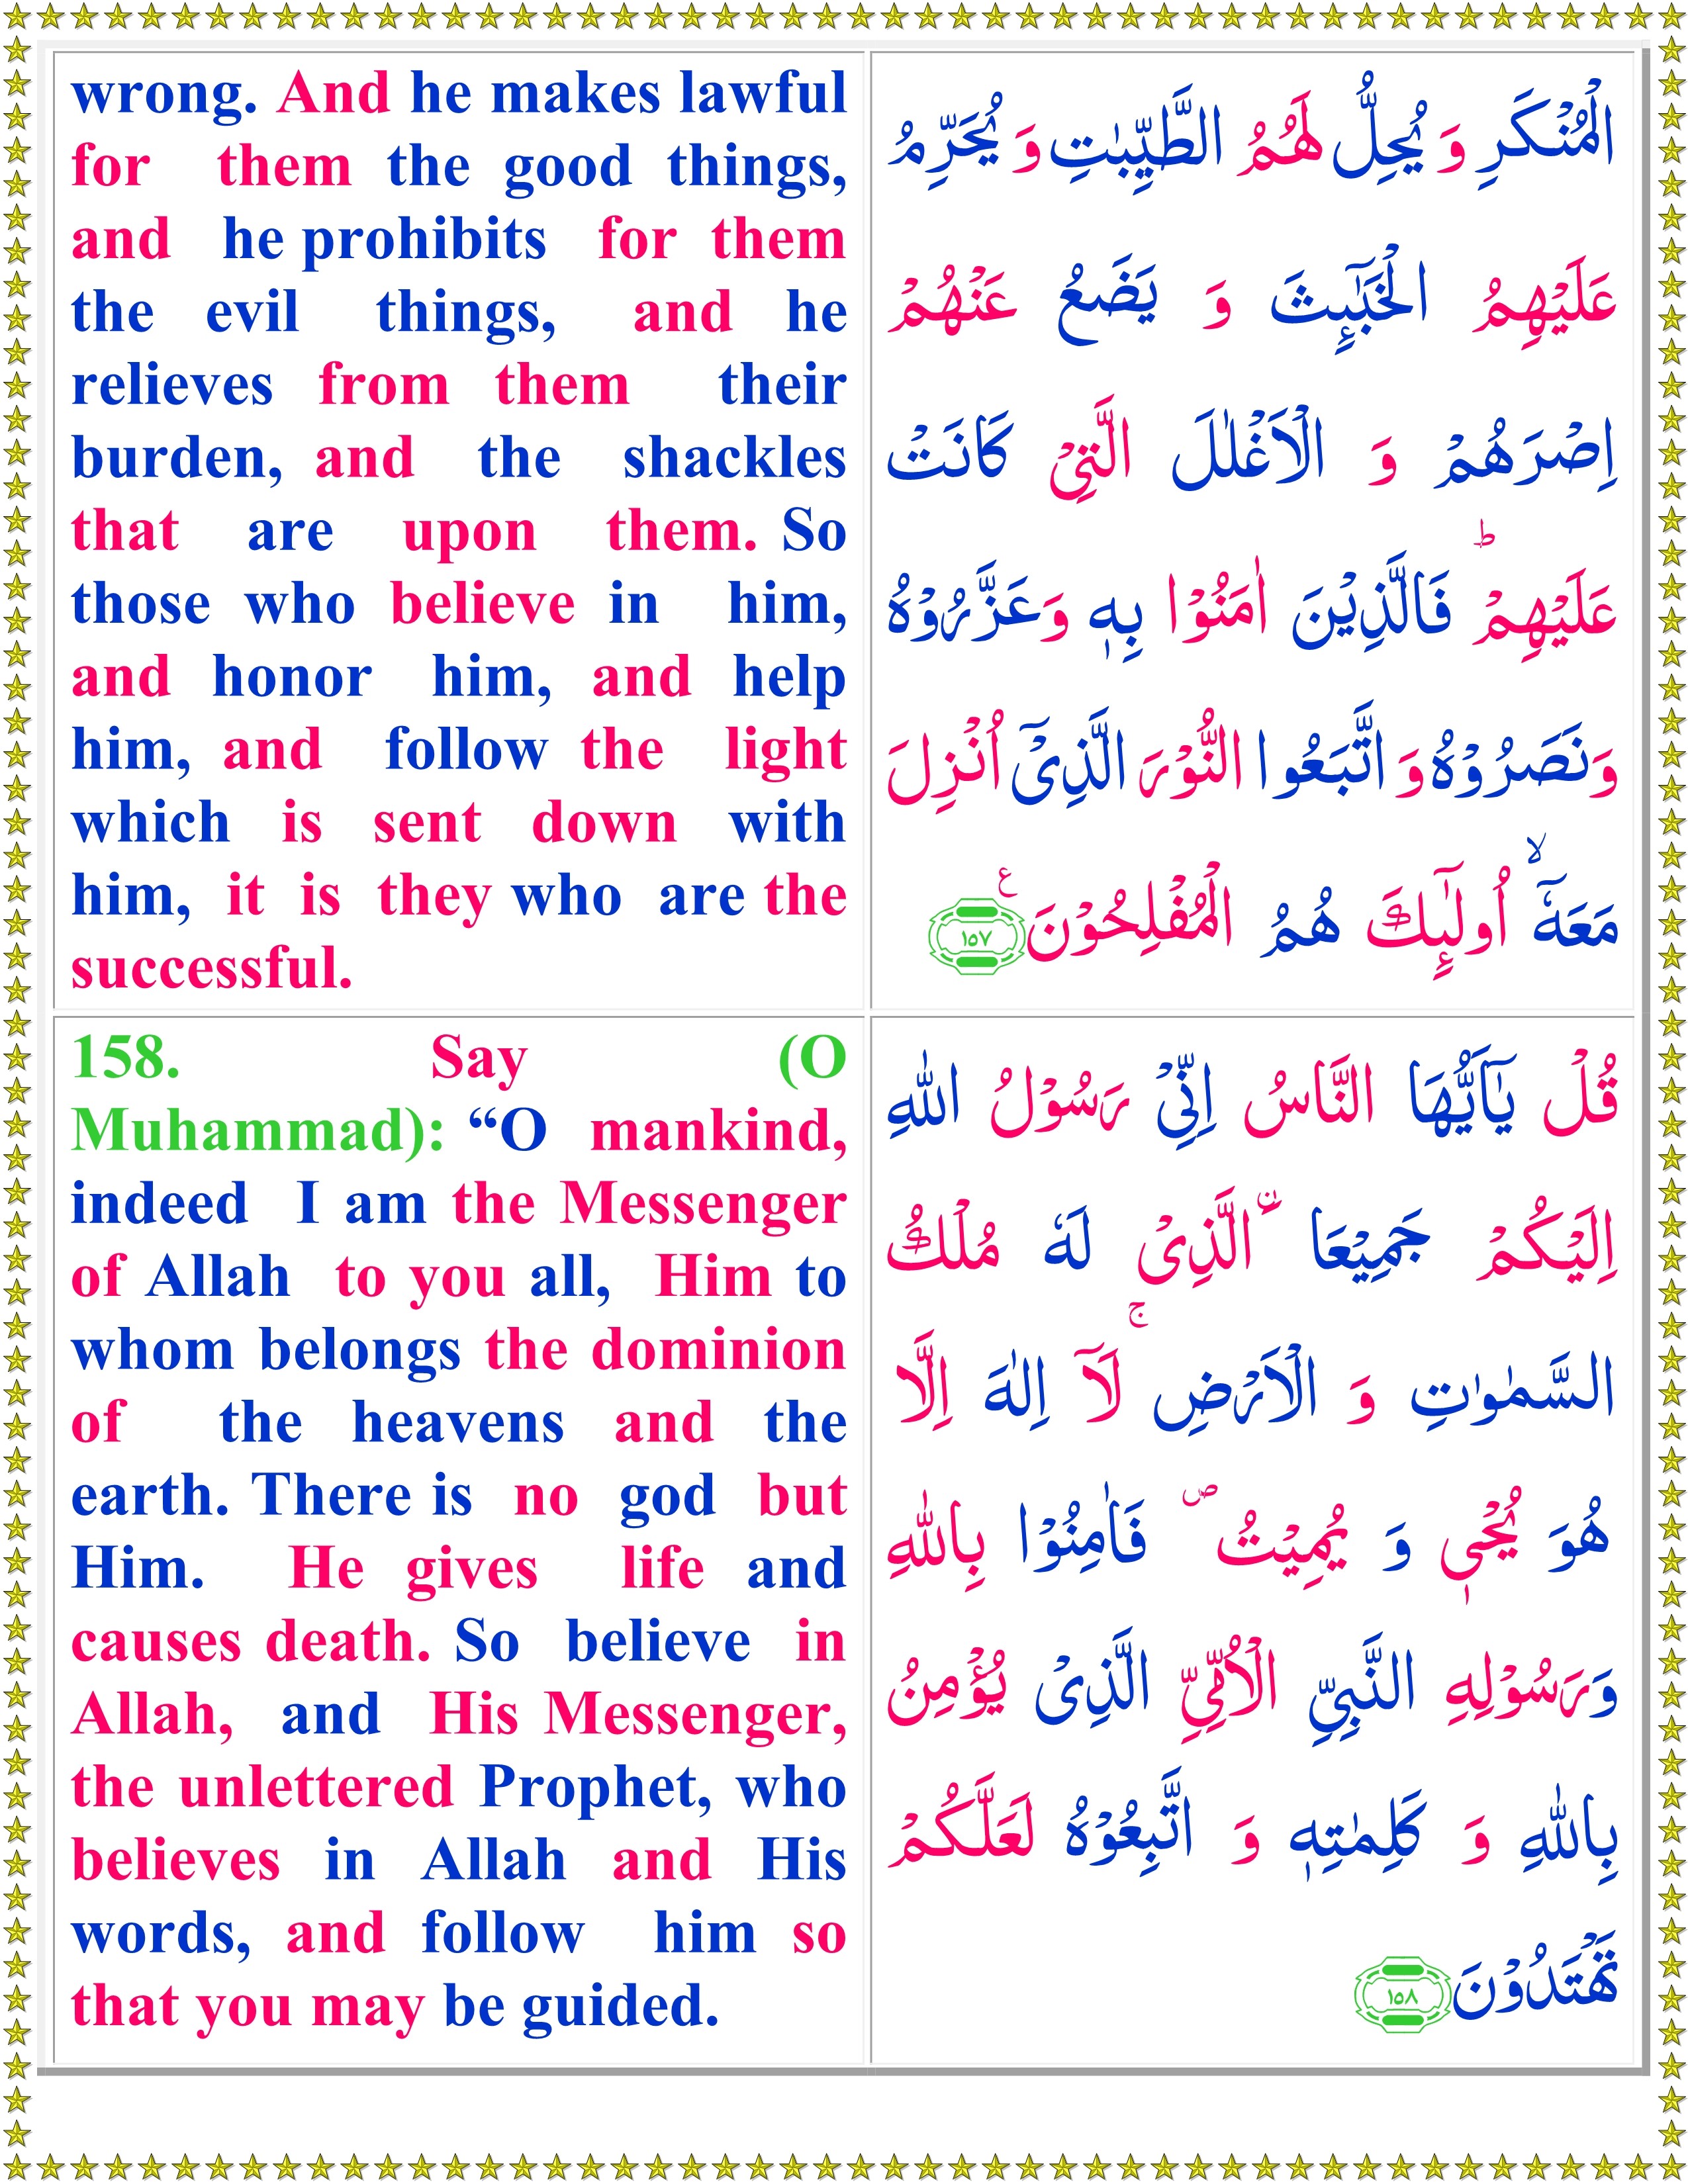 wrong. And he makes lawful
for them the good things,
and he prohibits for them
the evil things, and he
relieves from them their
burden, and the shackles
that are upon them. So
those who believe in him,
and honor him, and help
him, and follow the light
which is sent down with
him, it is they who are the
successful.
الْمُنْكَرِ وَ يُحِلُّ لَهُمُ الطَّيِّبٰتِ وَ يُحَرِّمُ
عَلَيْهِمُ الْخَبٰٓىِٕثَ وَ يَضَعُ عَنْهُمْ
اِصْرَهُمْ وَ الْاَغْلٰلَ الَّتِيْ كَانَتْ
عَلَيْهِمْ ؕ فَالَّذِيْنَ اٰمَنُوْا بِهٖ وَعَزَّرُوْهُ
وَنَصَرُوْهُ وَ اتَّبَعُوا النُّوْرَ الَّذِيْۤ اُنْزِلَ
مَعَهٗۤ ۙ اُولٰٓىِٕكَ هُمُ الْمُفْلِحُوْنَ ؑ ١٥٧
158. Say (O
Muhammad): “O mankind,
indeed I am the Messenger
of Allah to you all, Him to
whom belongs the dominion
of the heavens and the
earth. There is no god but
Him. He gives life and
causes death. So believe in
Allah, and His Messenger,
the unlettered Prophet, who
believes in Allah and His
words, and follow him so
that you may be guided.
قُلْ يٰۤاَيُّهَا النَّاسُ اِنِّيْ رَسُوْلُ اللّٰهِ
اِلَيْكُمْ جَمِيْعَا ۨ الَّذِيْ لَهٗ مُلْكُ
السَّمٰوٰتِ وَ الْاَرْضِ ۚ لَاۤ اِلٰهَ اِلَّا
هُوَ يُحْيٖ وَ يُمِيْتُ ۪ فَاٰمِنُوْا بِاللّٰهِ
وَرَسُوْلِهِ النَّبِيِّ الْاُمِّيِّ الَّذِيْ يُؤْمِنُ
بِاللّٰهِ وَ كَلِمٰتِهٖ وَ اتَّبِعُوْهُ لَعَلَّكُمْ
تَهْتَدُوْنَ ١٥٨